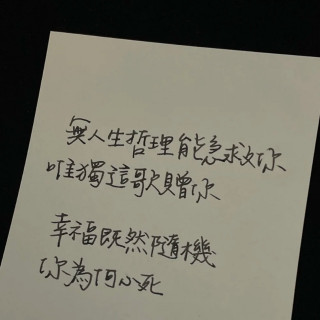 無人生哲理能急救你
唯獨這歌贈你
幸福既然隨機
你為何心死